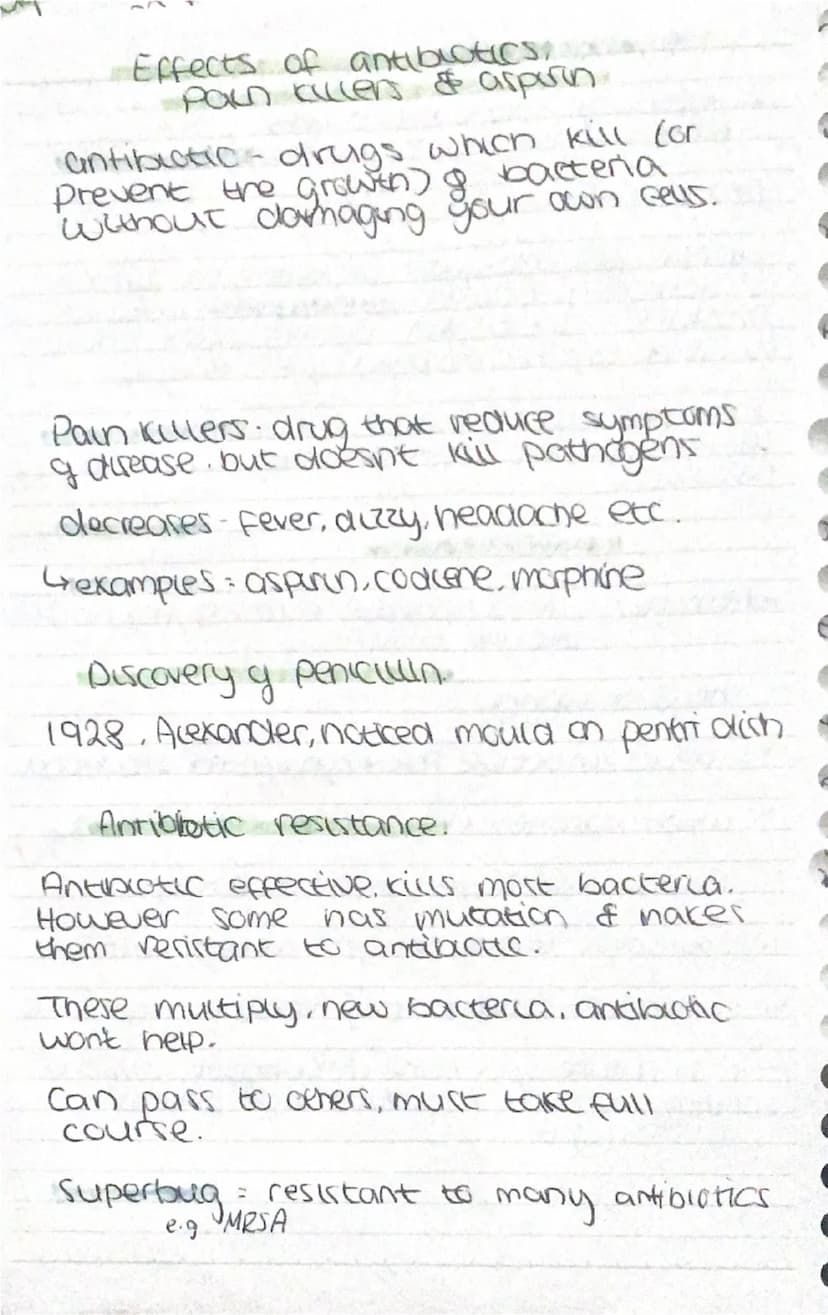 Effects of antibiotics,
Pain killers & aspirin
antibiotic - drugs which kill (or
prevent the growth) of bacteria
without damaging your own cells.
Pain killers - drug that reduce symptoms
of disease. but doesn't kill pathogens
decreases - fever, dizzy, headache etc.
↳examples = aspirin, codiene, morphine
Discovery of penicillin.
1928, Alexander, noticed mould on pentri dich
Antibiotic resistance.
Antibiotic effective. kills most bacteria.
However some has mutation & makes
them resistant to antibiotic.
These multiply, new bacteria, antibiotic
wont help.
Can pass to others, must take full
course.
Superbug = resistant to many antibiotics
e.g MRSA